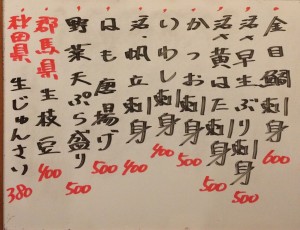 金目鯛刺身 600
近海早生ぶり刺身 500
近海黄はた刺身 500
かつお刺身 500
いわし刺身 400
近海帆立刺身 400
はも唐揚げ 500
野菜天ぷら盛り 500
群馬県 生枝豆 400
秋田県 生じゅんさい 380